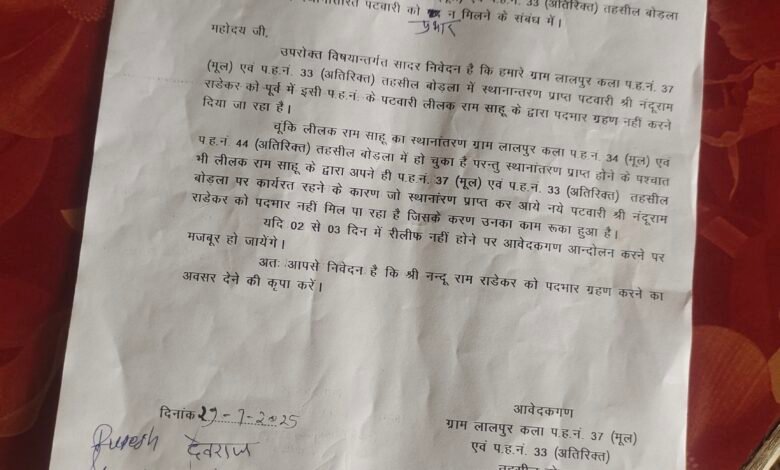 स्थानांतरित पटवारी को न मिलने के संबंध में। 33 (अतिरिक्त) तहसील बोड़ला
प्रभार
महोदय जी,
उपरोक्त विषयान्तर्गत सादर निवेदन है कि हमारे ग्राम लालपुर कला प.ह.नं. 37
(मूल) एवं प.ह.नं. 33 (अतिरिक्त) तहसील बोड़ला में स्थानान्तरण प्राप्त पटवारी श्री नंदूराम
राडेकर को पूर्व में इसी प.ह.नं. के पटवारी लीलक राम साहू के द्वारा पदभार ग्रहण नहीं करने
दिया जा रहा है।
चूंकि लीलक राम साहू का स्थानांतरण ग्राम लालपुर कला प.ह.नं. 34 (मूल) एवं
प.ह.नं. 44 (अतिरिक्त) तहसील बोड़ला में हो चुका है परन्तु स्थानांतरण प्राप्त होने के पश्चात
भी लीलक राम साहू के द्वारा अपने ही प.ह.नं. 37 (मूल) एवं प.ह.नं. 33 (अतिरिक्त) तहसील
बोड़ला पर कार्यरत रहने के कारण जो स्थानांरण प्राप्त कर आये नये पटवारी श्री नंदूराम
राडेकर को पदमार नहीं मिल पा रहा है जिसके करण उनका काम रूका हुआ है।
यदि 02 से 03 दिन में रीलीफ नहीं होने पर आवेदकगण आन्दोलन करने पर
मजबूर हो जायेंगे।
अतः आपसे निवेदन है कि श्री नन्दू राम राडेकर को पदभार ग्रहण करने का
अवसर देने की कृपा करें।
दिनांक 29-7-2025
आवेदकगण
ग्राम लालपुर कला प.ह.नं. 37 (मूल)
एवं प.ह.नं. 33 (अतिरिक्त)
देवराज